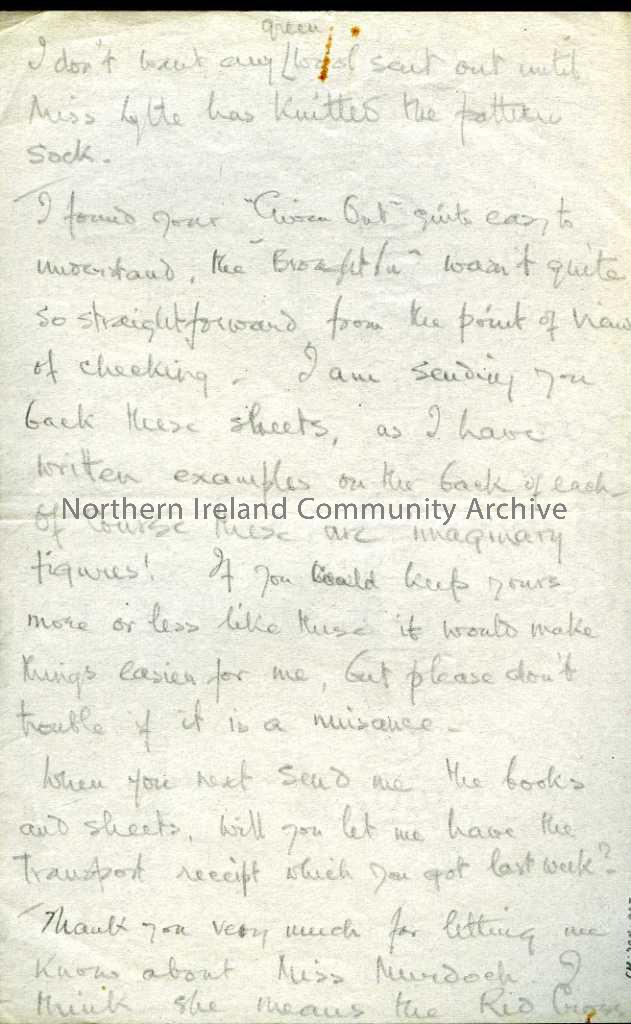 green
I don't want any wool sent out until
Miss Lytte has knitted the pattern
sock.
I found your "Given Out" quite easy to
understand, the "Brought In" wasn't quite
so straightforward from the point of view
of checking. I am sending you
back these sheets, as I have
written examples on the back of each.
Of course these are imaginary
figures! If you could keep yours
more or less like these it would make
things easier for me, but please don't
trouble if it is a nuisance.
When you next send me the books
and sheets, will you let me have the
Transport receipt which you got last week?
Thank you very much for letting me
know about Miss Murdoch. I
think she means the Red Cross
Northern Ireland Community Archive